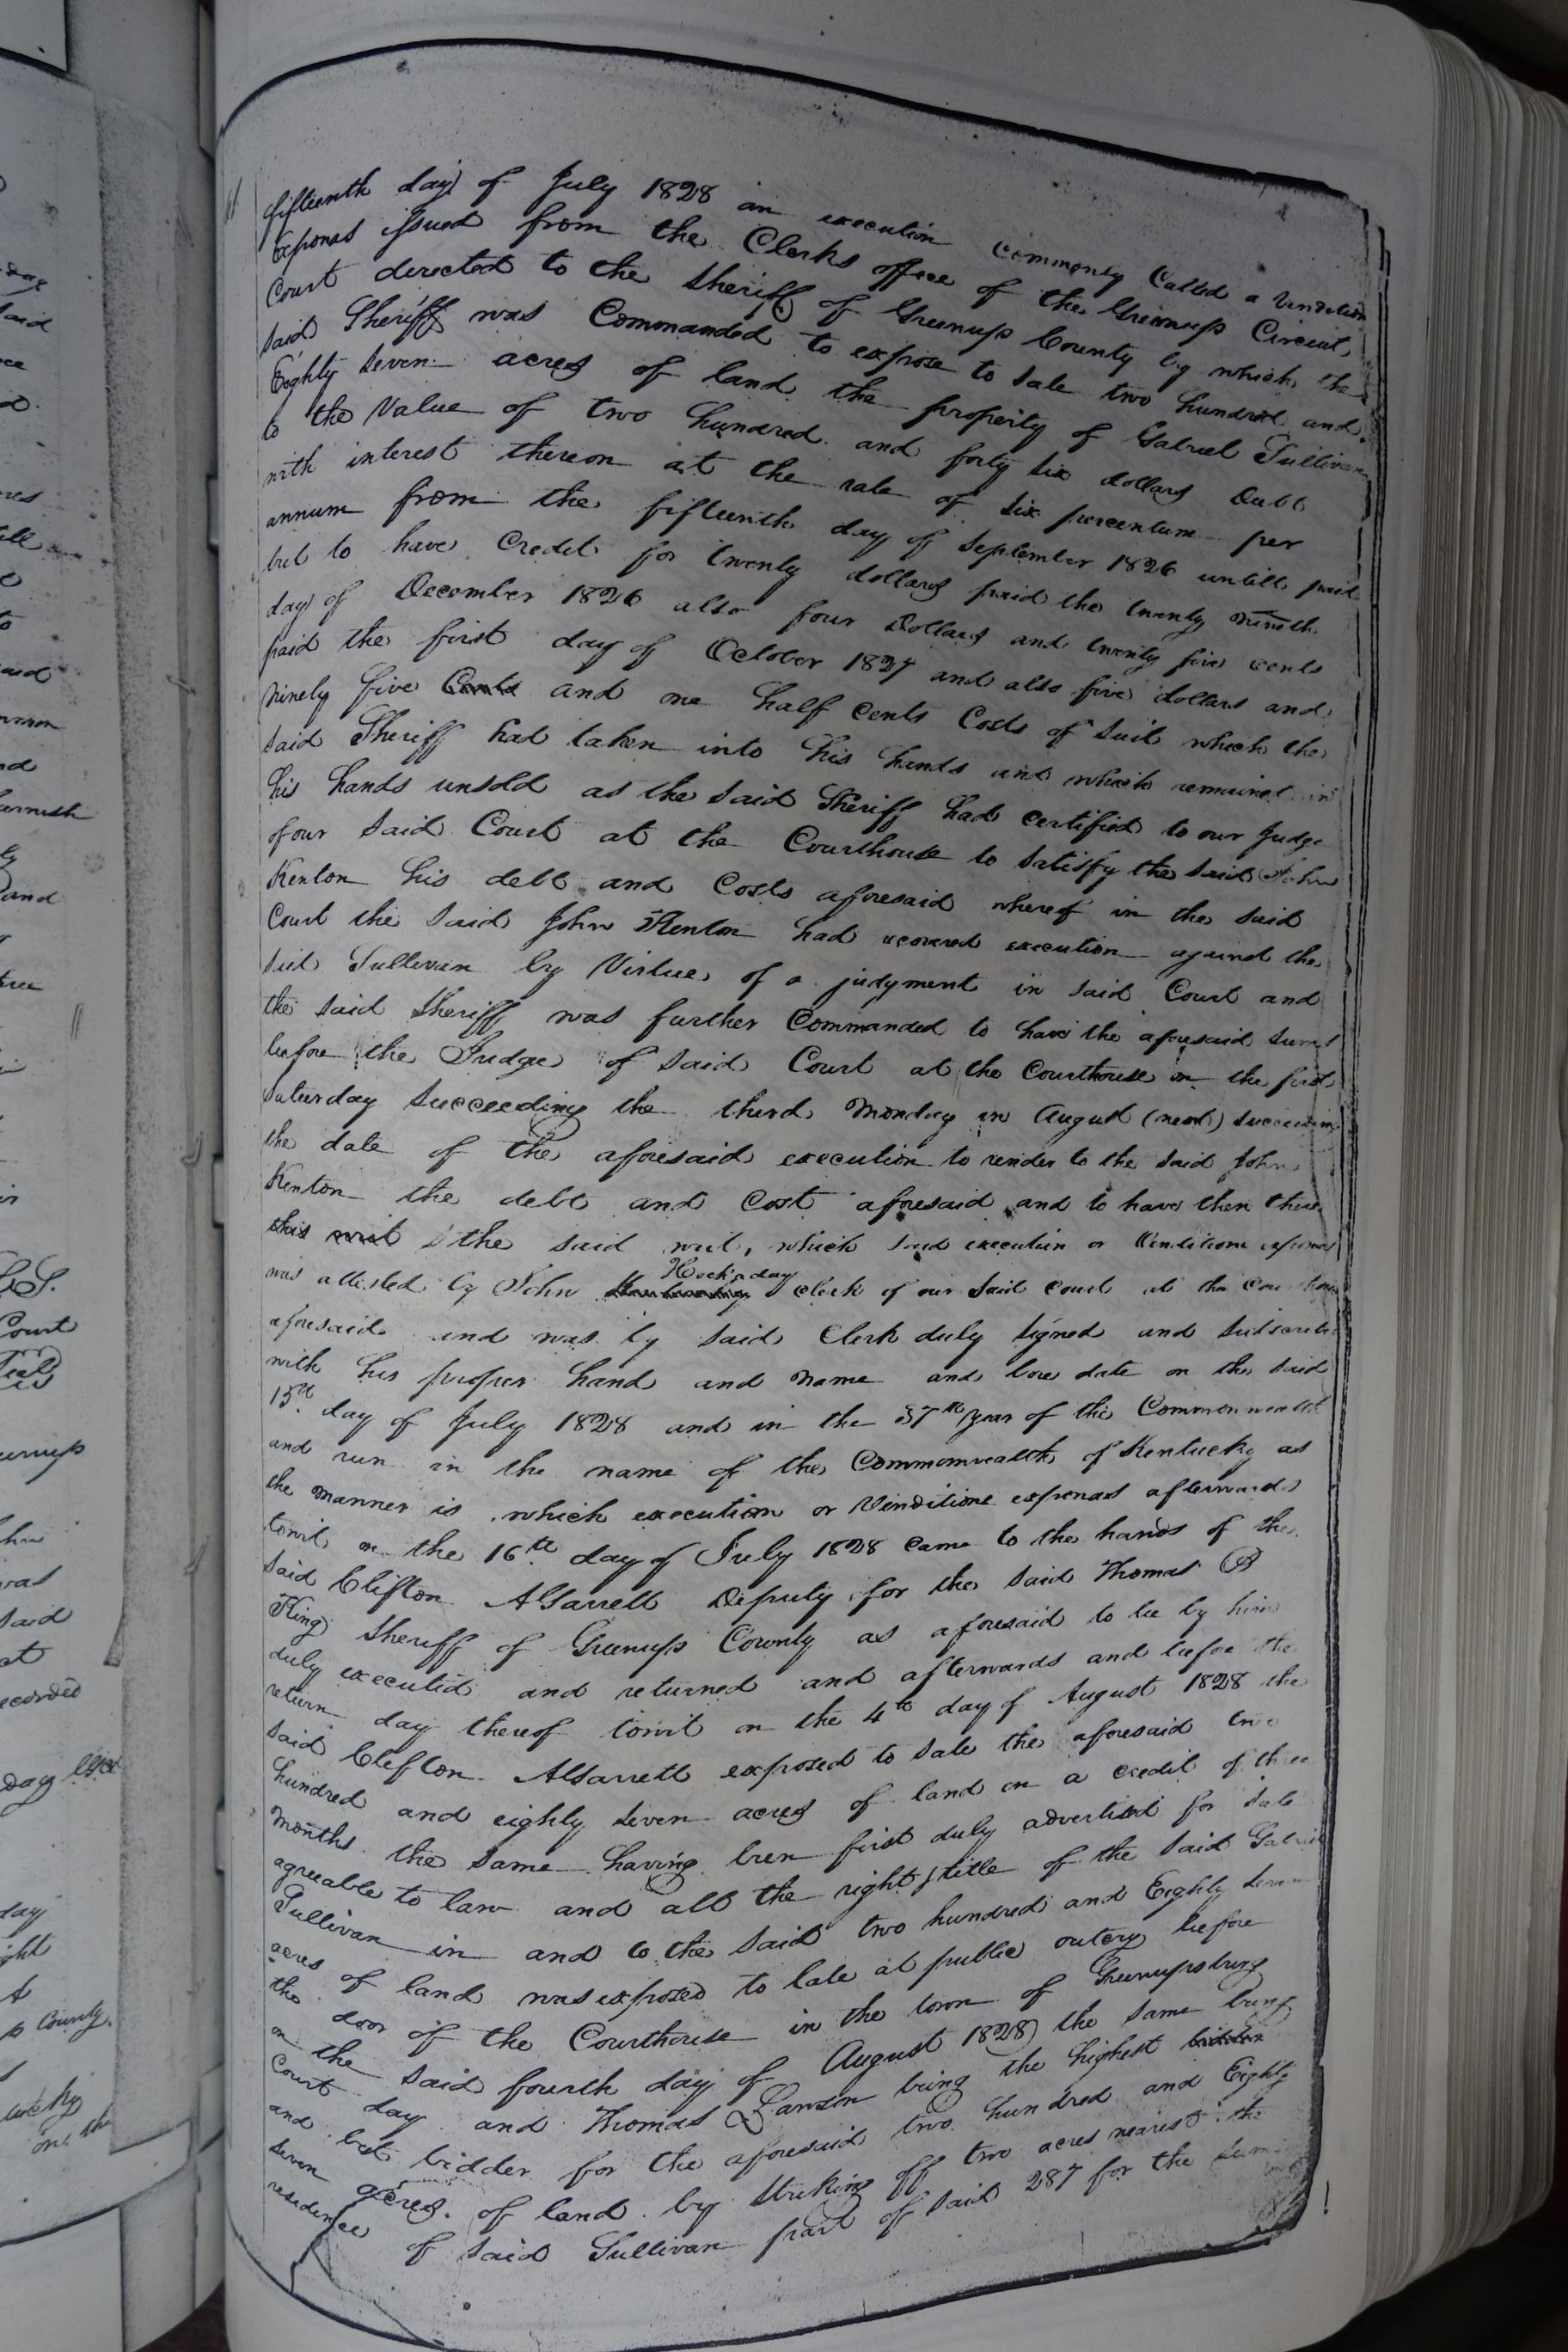 fifteenth day of July 1828 an execution commonly Called a Vendition
Exponas issued from the Clerks office of the Greenup Circuit
Court directed to the Sheriff of Greenup County by which the
said Sheriff was Commanded to expose to sale two hundred and
Eighty Seven acres of land the property of Gabriel Sullivan
to the Value of two hundred and forty six dollars Debt
with interest thereon at the rate of six percentum per
annum from the fifteenth day of September 1826 untill paid
but to have Credit for twenty dollars paid the twenty nineth
day of December 1826 also four Dollars and twenty five cents
paid the first day of October 1827 and also five dollars and
ninety five Cents and one half Cents Costs of suit which the
said Sheriff had taken into his hands and which remained in
his hands unsold as the said Sheriff had certified to our Judge
of our said Court at the Courthouse to satisfy the said John
Kenton his debt and Costs aforesaid whereof in the said
Court the said John Kenton had recovered execution against the
said Sullivan by Virtue of a judgment in said Court and
the said Sheriff was further Commanded to have the aforesaid sums
before the Judge of said Court at the Courthouse on the first
saturday Succeeding the third Monday in August (next) succeeding
the date of the aforesaid execution to render to the said John
Kenton the debt and Cost aforesaid and to have then there
this writ the said writ, which said execution or Venditioni exponas
was attested by John Hockaday clerk of our said Court at the Courthouse
aforesaid and was by said Clerk duly signed and subscribed
with his proper hand and name and bore date on the said
15th day of July 1828 and in the 37th year of the Commonwealth
and run in the name of the Commonwealth of Kentucky as
the manner is which execution or Venditione exponas afterwards
towit on the 16th day of July 1828 came to the hands of the
said Clifton Deputy for the said Thomas B
King Sheriff of Greenup County as aforesaid to be by him
duly executed and returned and afterwards and before the
return day thereof towit on the 4th day of August 1828 the
said Clefton exposed to sale the aforesaid two
hundred and eighty seven acres of land on a credit of three
months the same having been first duly advertised for sale
agreeable to law and all the right title of the said Gabriel
Sullivan in and to the said two hundred and Eighty seven
acres of land was exposed to sale at public outcry before
the door of the Courthouse in the town of Greenupsburg
on the said fourth day of August 1828) the same being
Court day and Thomas Lawson being the highest bidder
and best bidder for the aforesaid two hundred and Eighty
seven acres of land by striking off two acres nearest the
residence of said Sullivan part of said 287 for the sum